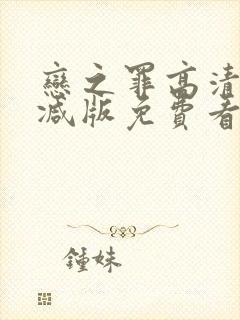 戀之罪高清
减版免費看
鍾妹